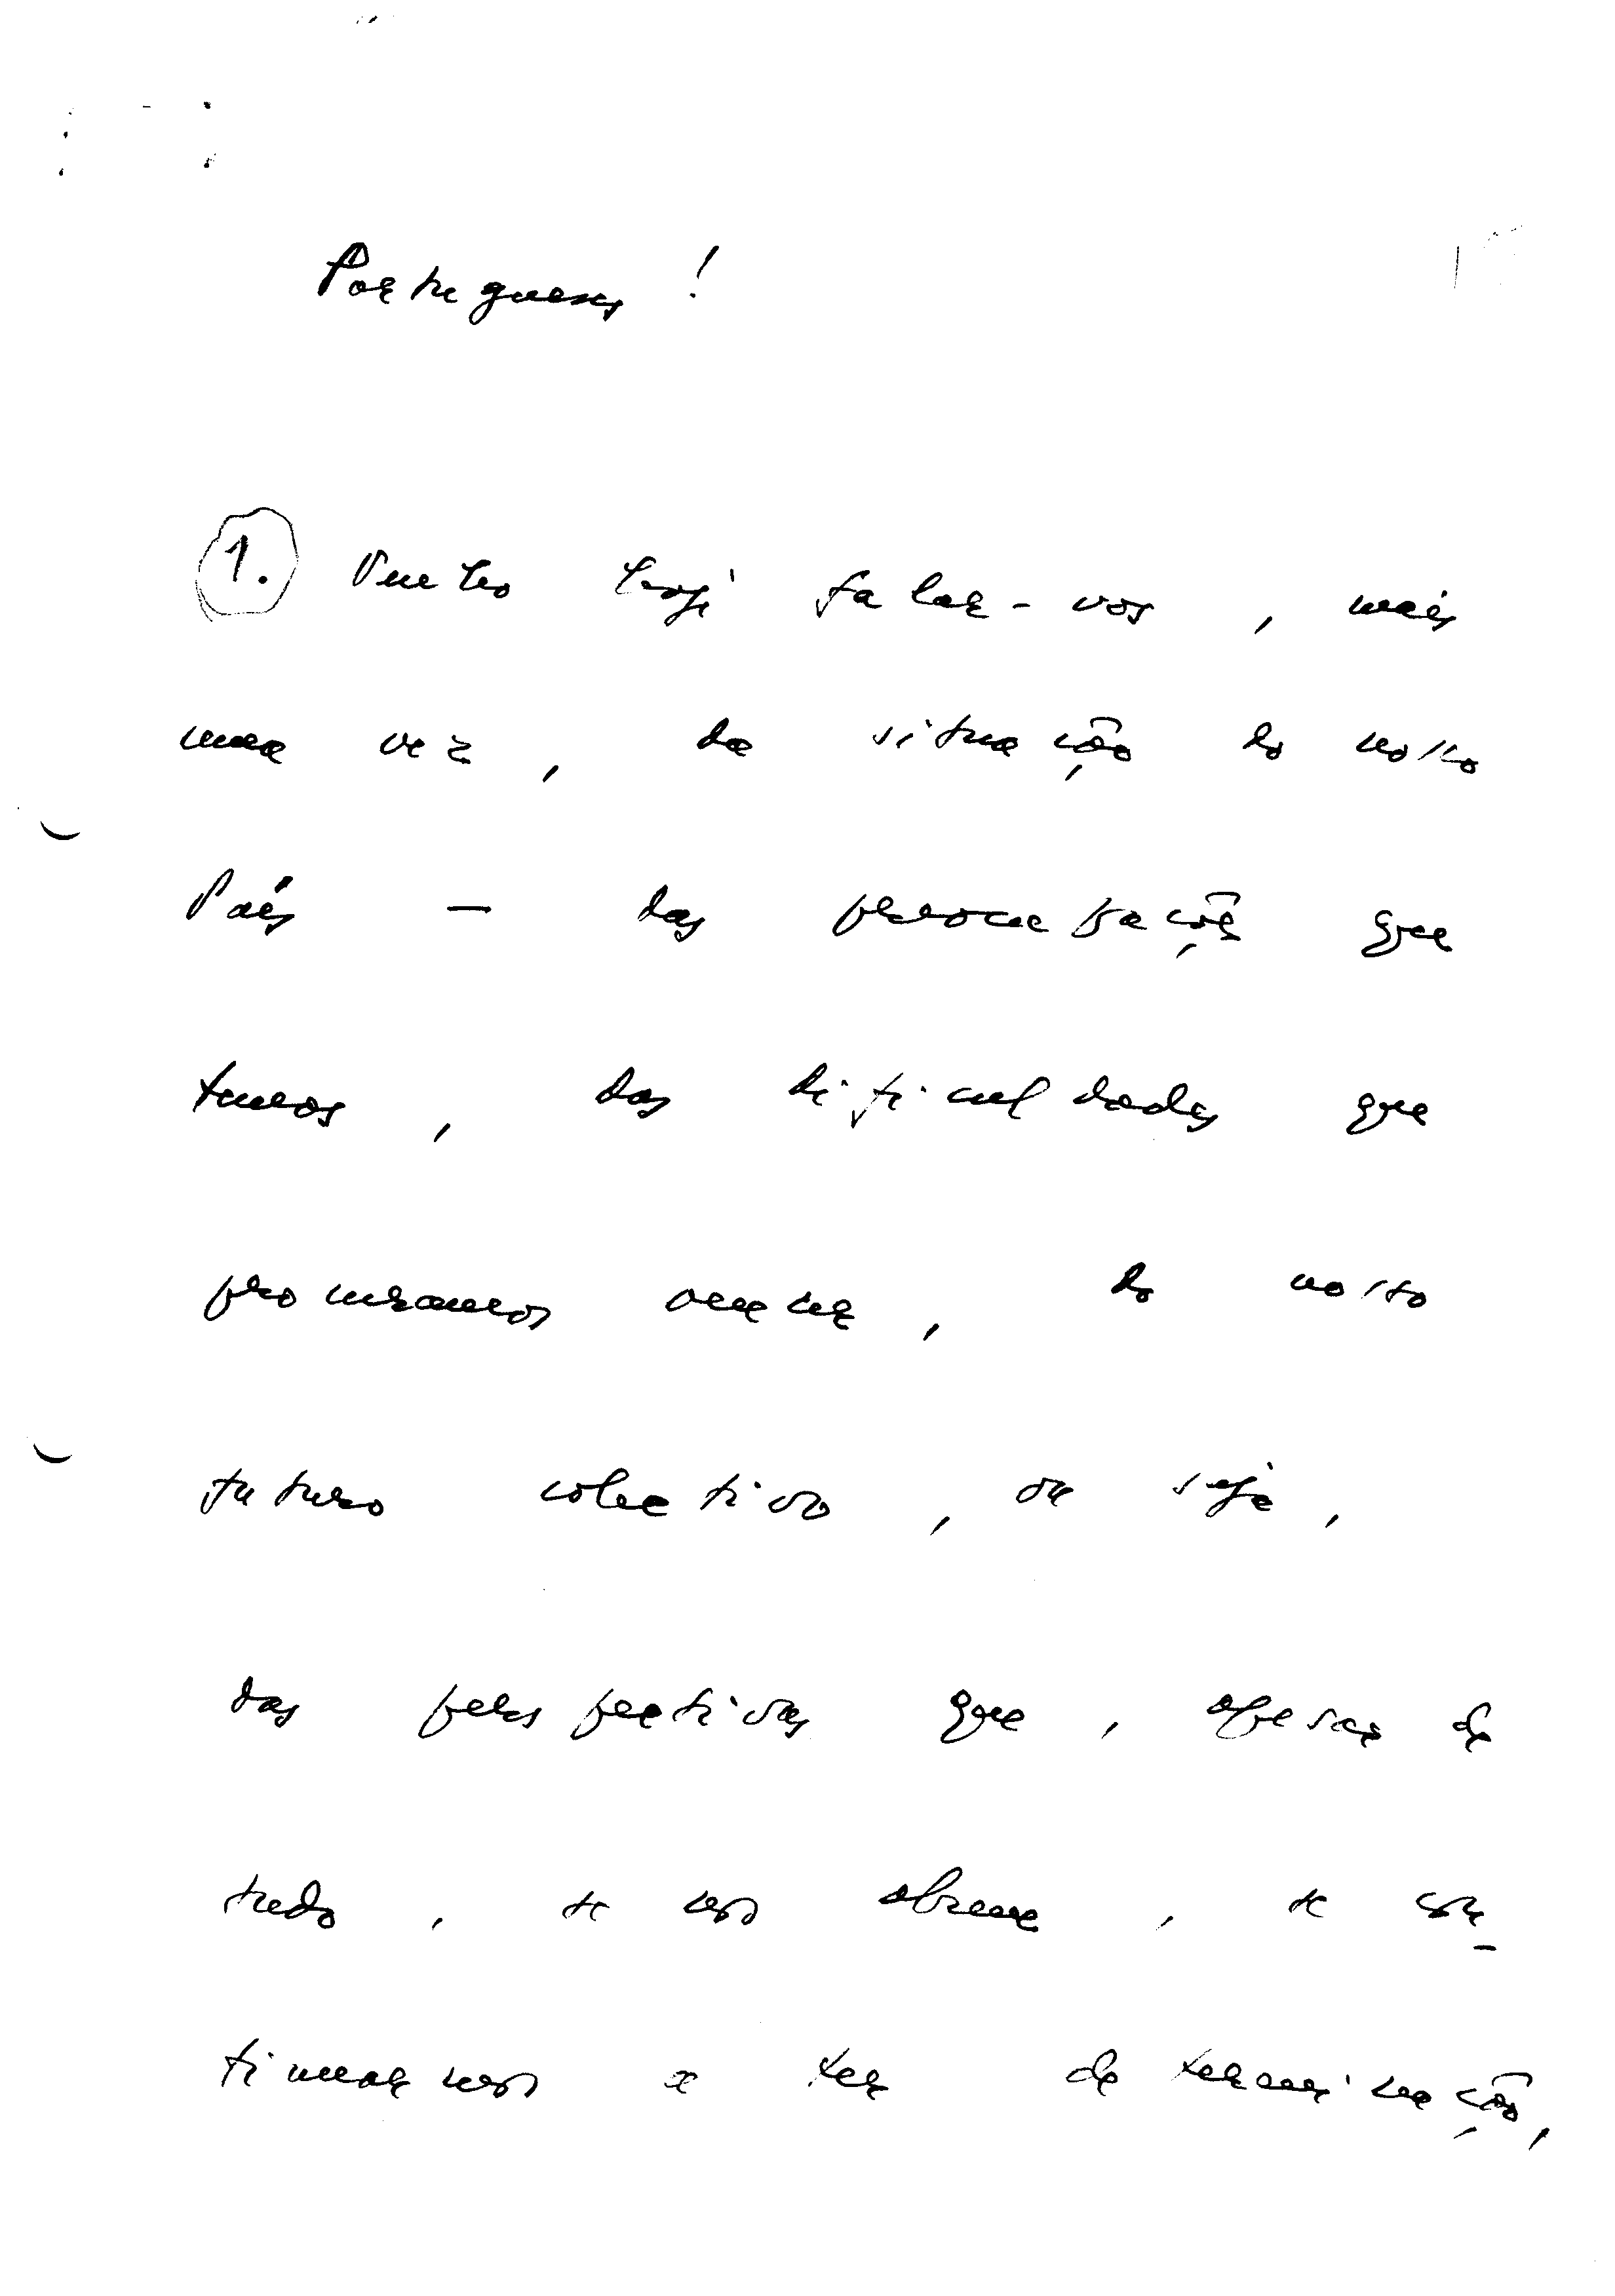 Portugueses!
1. Venho hoje falar-vos, mais
uma vez, da situação do nosso
País — das preocupações que
temos, das dificuldades que
procuramos vencer, do nosso
futuro colectivo, ou seja,
das perspectivas que, apesar de
tudo, se nos abrem, se con-
tinuarmos a ter determinação,